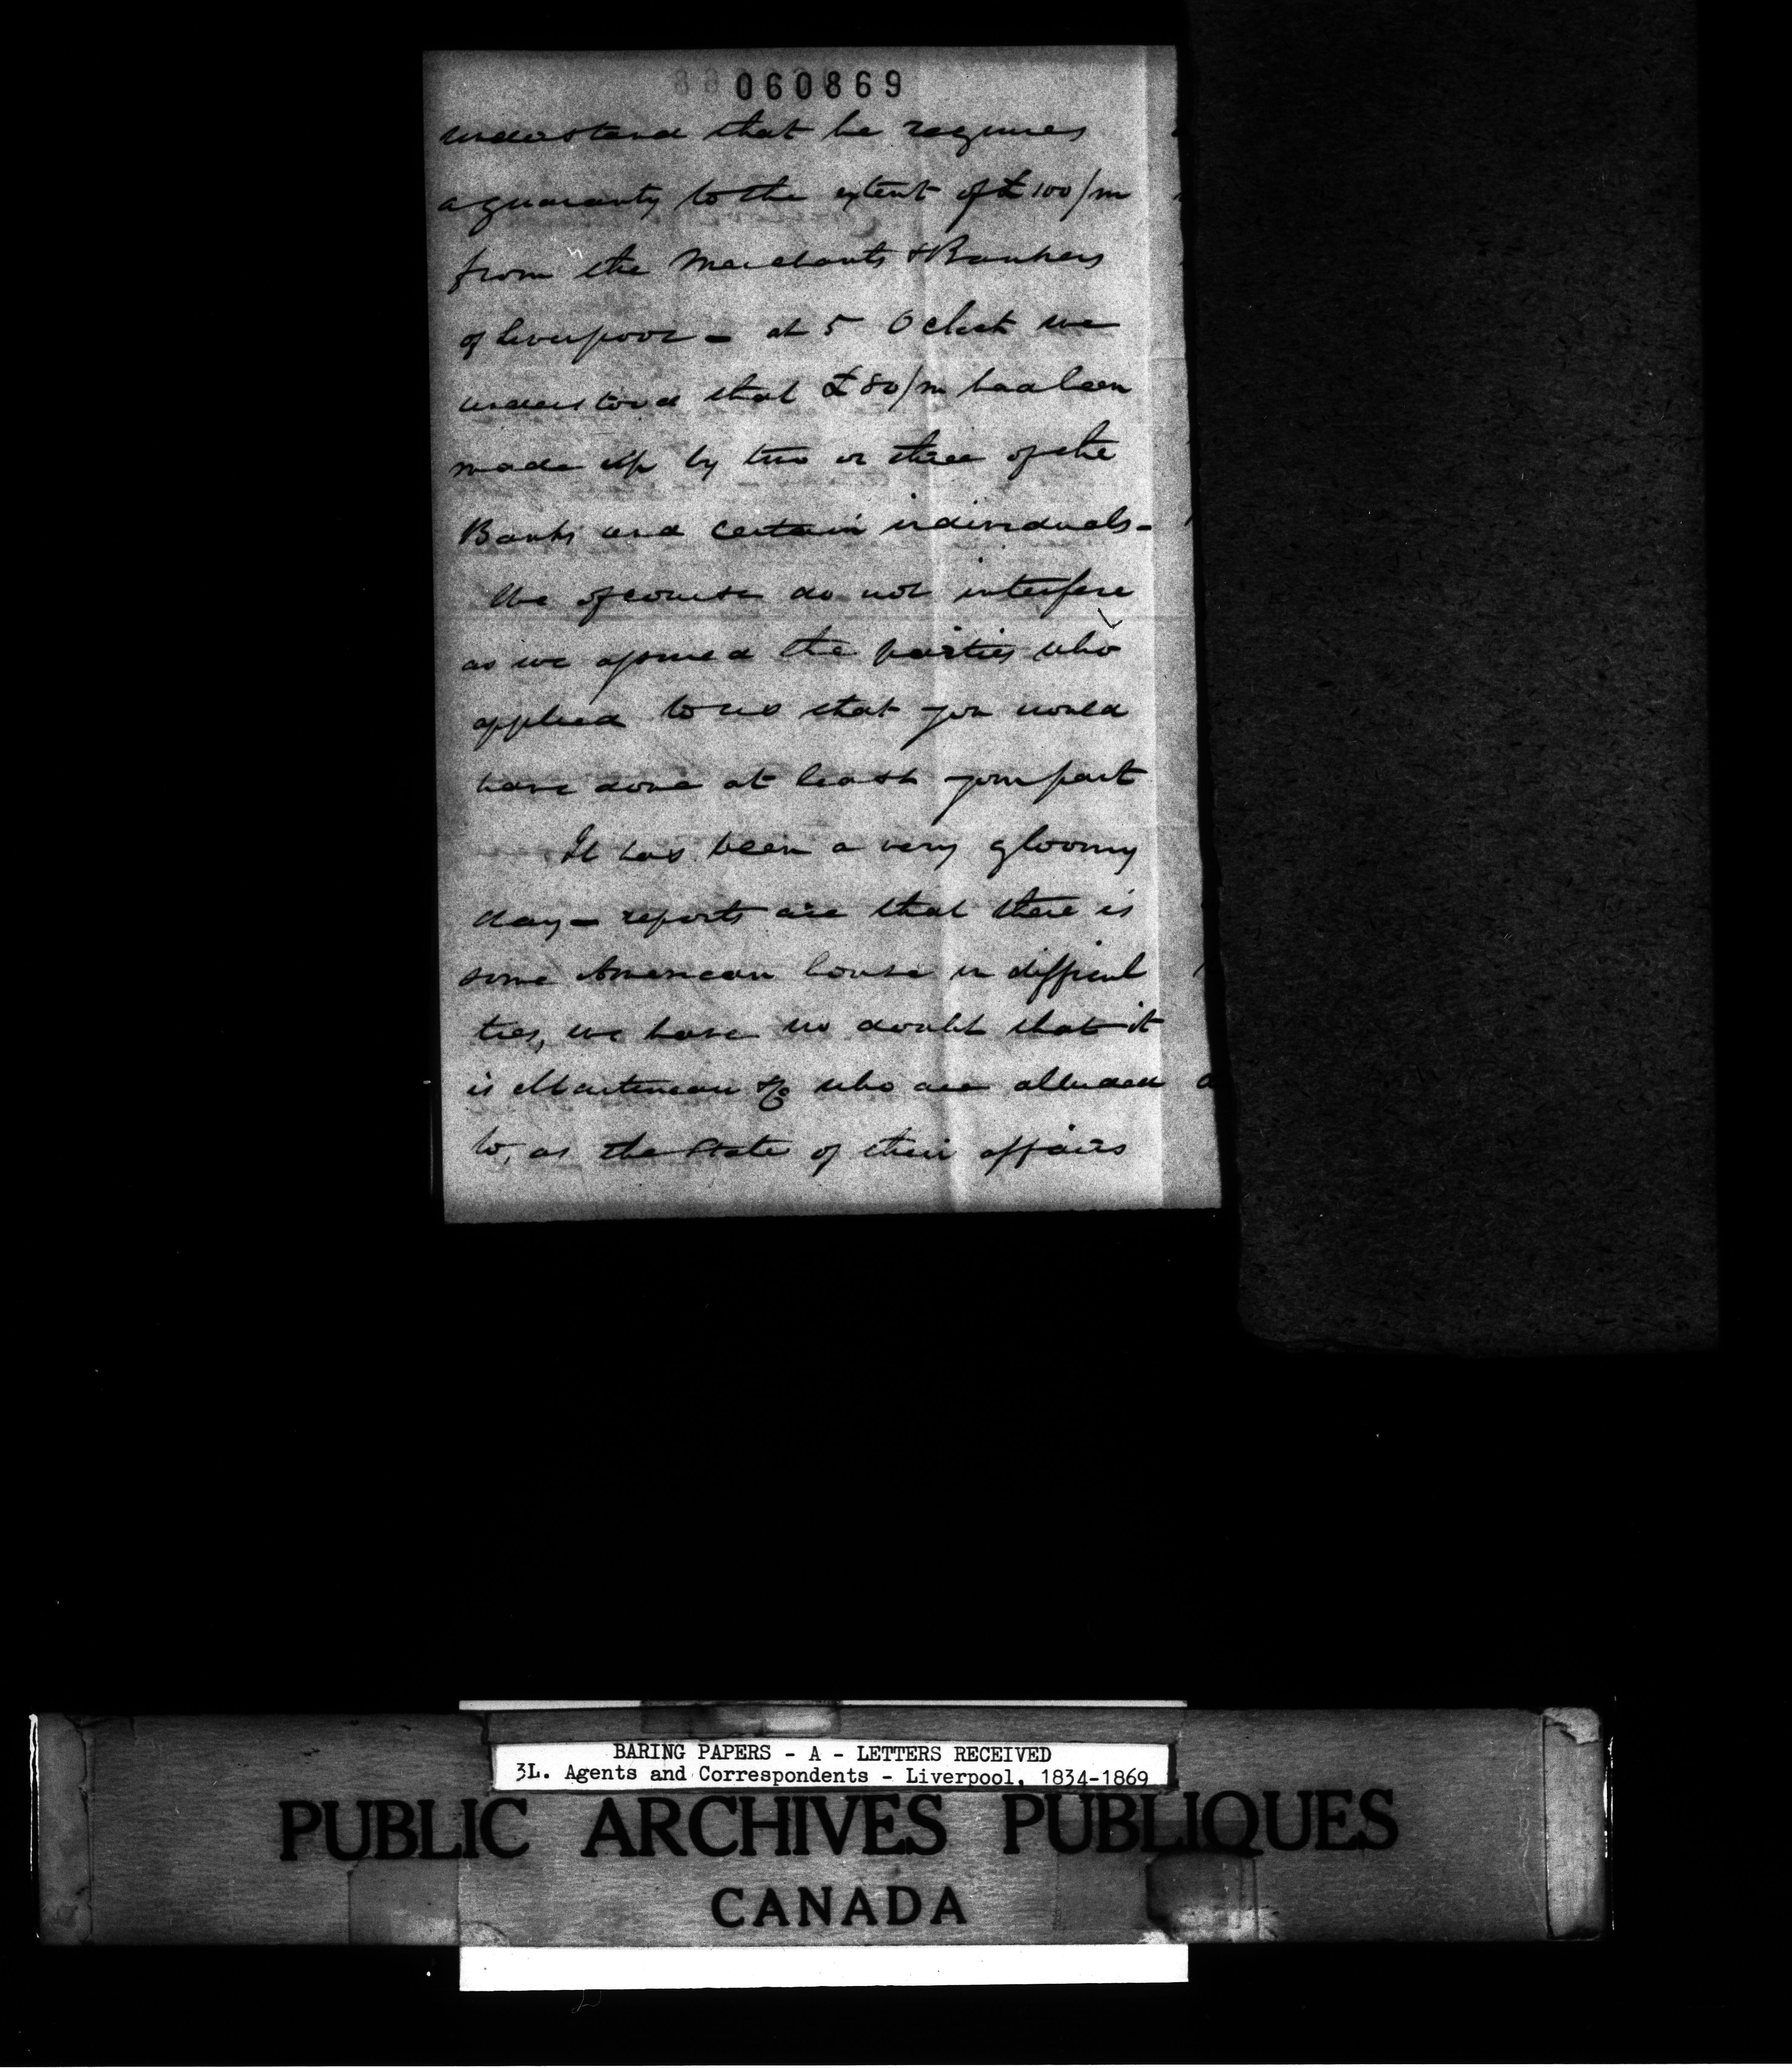 060869
understand that he requires
a guaranty to the extent of £100/m
from the Merchants & Bankers
of Liverpool - at 5 O clock we
understood that £80/m had been
made up by two or three of the
Banks and certain individuals -
We of course do not interfere
as we assured the parties who
applied to us that you would
have done at least your part
It has been a very gloomy
day - reports are that there is
some American house in difficul
ties, we have no doubt that it
is Martineau & Co who are alluded
to, as the state of their affairs
BARING PAPERS - A - LETTERS RECEIVED
3L. Agents and Correspondents - Liverpool, 1834-1869
PUBLIC ARCHIVES PUBLIQUES
CANADA